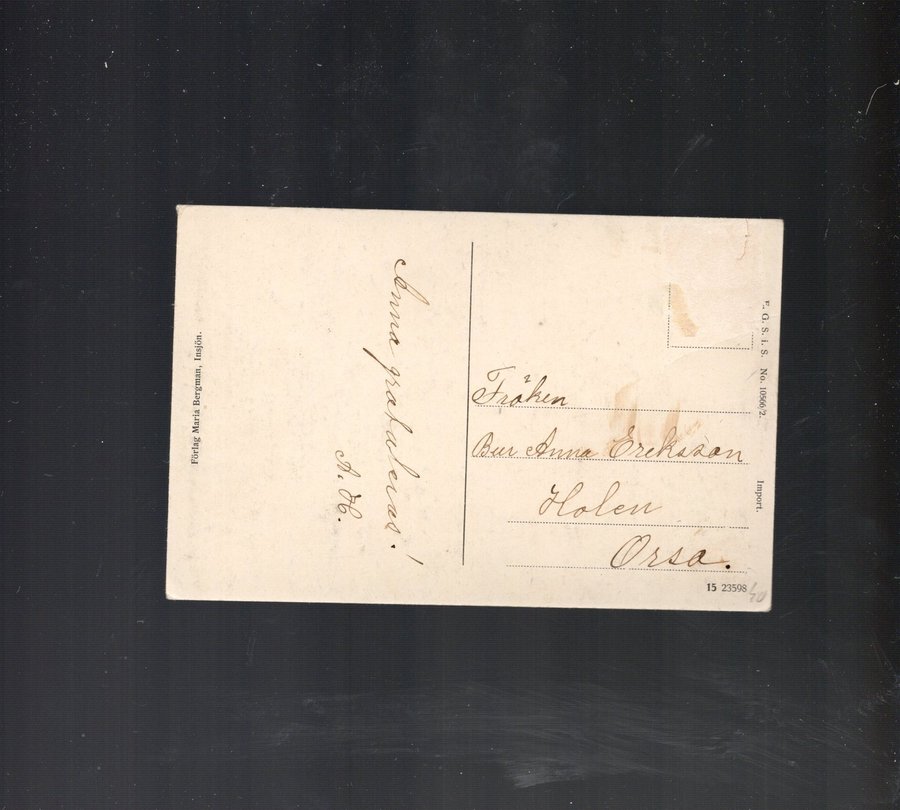 Förlag Maria Bergman, Insjön.
Anna gratuleras!
A. H.
Fröken
Bur Anna Ereksson
Holen
Orsa.
E. G. S. i. S. No. 10566/2.
Import.
15 23598